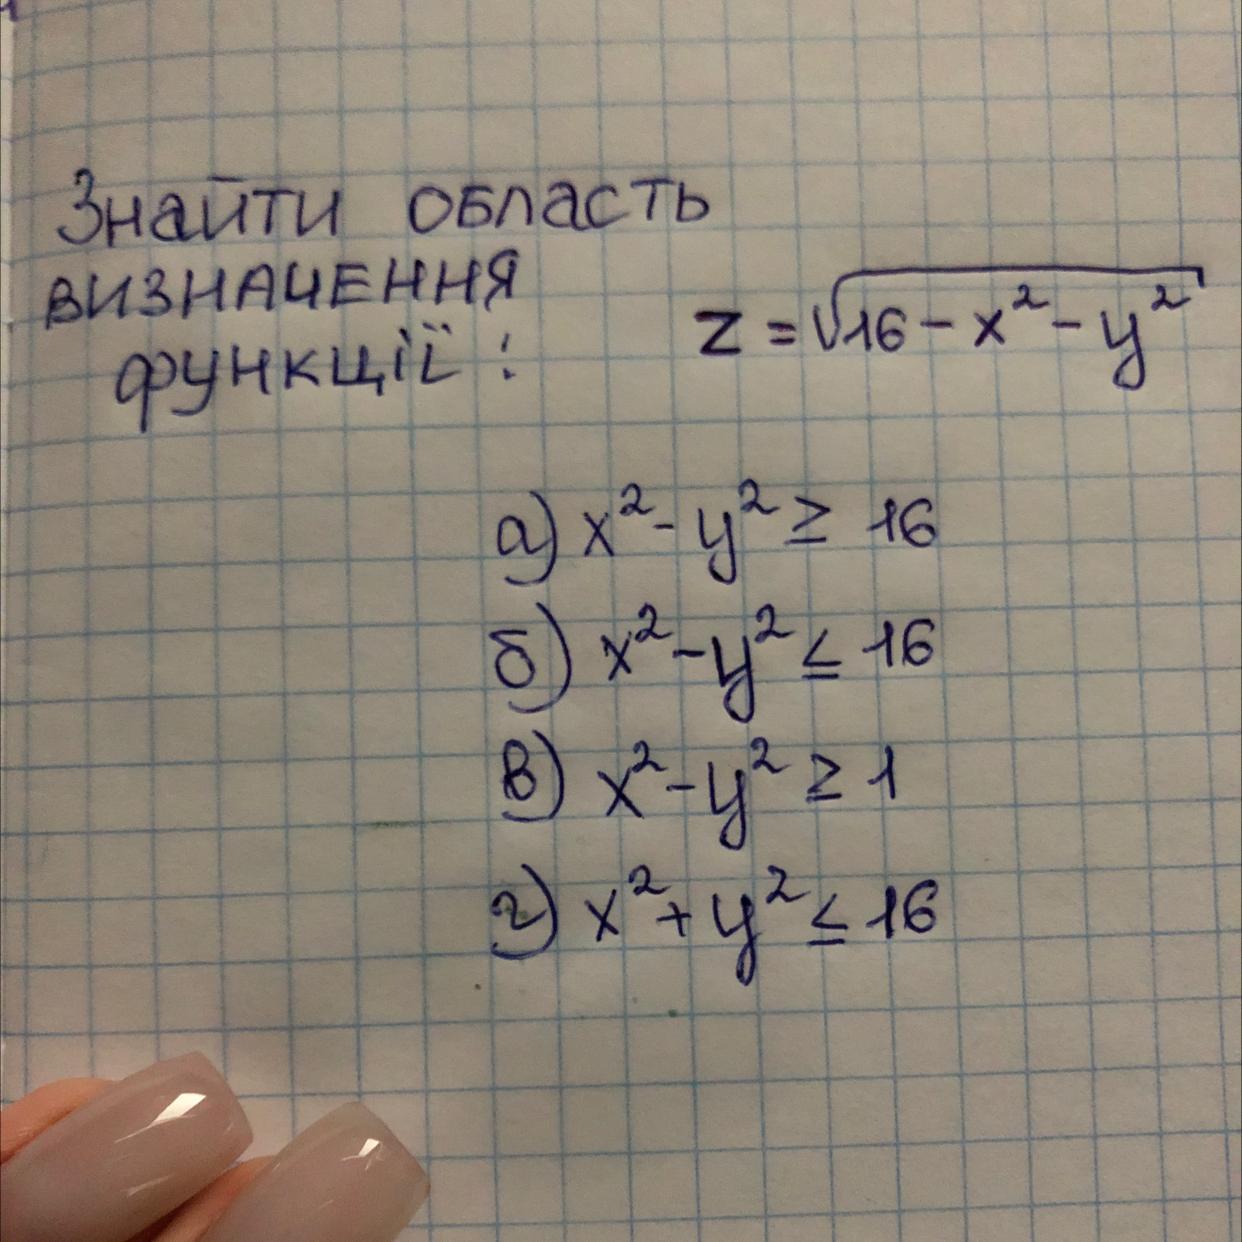 Знайти область
визначення
функції:
z = √16 - x² - y²
а) x² - y² ≥ 16
б) x² - y² ≤ 16
в) x² - y² ≥ 1
г) x² + y² ≤ 16